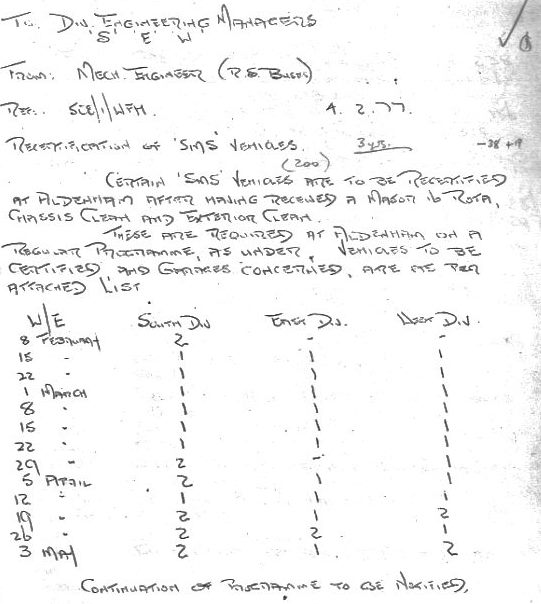 To Div. Engineering Managers
S. E. W.
From: Mech. Engineer (R.S. Busby)
Ref: SCE/1/WFM. 4. 2. 77.
Recertification of 'SMS' Vehicles. 3 yrs. -38 +9
(200)
Certain 'SMS' Vehicles are to be Recertified
at Aldenham after having received a Major 16 Rota,
Chassis Clean and Exterior Clean.
These are required at Aldenham on a
Regular Programme, as under, Vehicles to be
Certified and Garages concerned, are as per
attached List
W/E South Div. East Div. West Div.
8 February 2 - -
15 " 1 1 1
22 " 1 1 1
1 March 1 1 1
8 " 1 1 1
15 " 1 1 1
22 " 1 1 1
29 " 2 - 1
5 April 2 1 1
12 " 1 1 1
19 " 2 1 2
26 " 2 2 1
3 May 2 1 2
Continuation of Programme to be Notified.